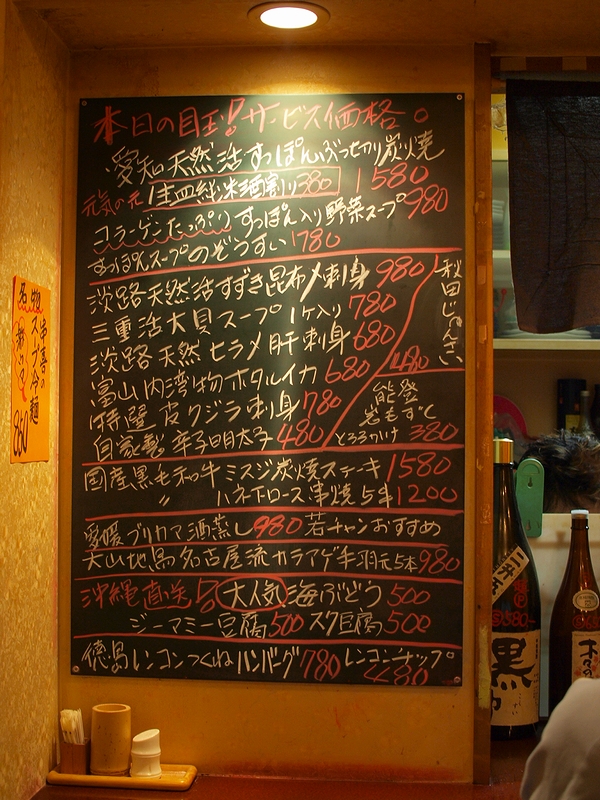 本日の目玉!サービス価格。
愛知天然活すっぽんぶつ切り炭焼 1580
元気の元 1生血純米酒割り380
コラーゲンたっぷりすっぽん入り野菜スープ980
すっぽんスープのぞうすい1780
淡路天然活すずき昆布〆刺身 980
三重活大貝スープ 1ケ入り 780
淡路天然ヒラメ肝刺身 680
富山内湾物ホタルイカ 680
特選皮クジラ刺身 780
自家製辛子明太子 480
秋田じゅんさい
480
能登
岩もずく
とろろつけ 380
国産黒毛和牛ミスジ炭焼ステーキ 1580
〃 ハネ下ロース串焼5本1200
愛媛ブリカマ酒蒸し980 若チャンおすすめ
大山地鳥名古屋流カラアゲ手羽元5本980
沖縄直送!大人気海ぶどう 500
ジーマミー豆腐500 スク豆腐500
徳島レンコンつくねハンバーグ780 レンコンチップ
480
名物
宇善の
スープ冷麺
850
黒